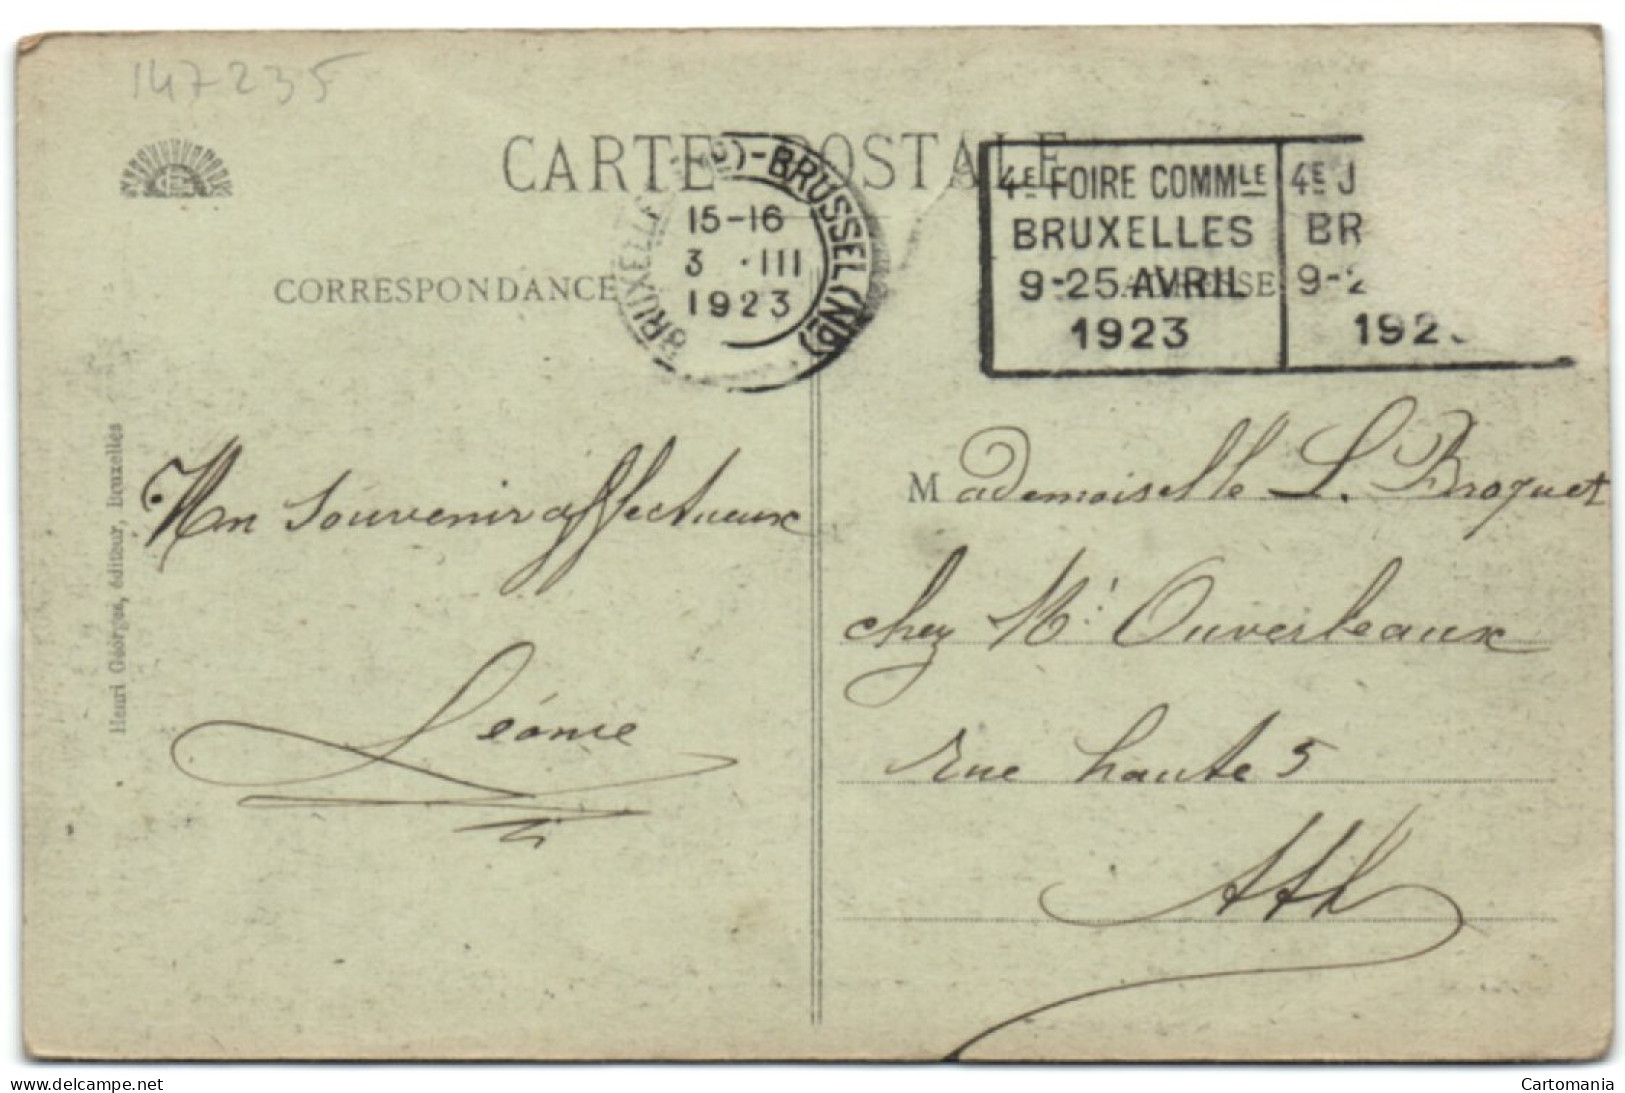 147235
CARTE POSTALE
CORRESPONDANCE
BRUXELLES (Nd)-BRUSSEL (Nd)
15-16
3 · III
1923
4E FOIRE COMMLE
BRUXELLES
9-25 AVRIL
1923
4E J
BR
9-2
1923
ADRESSE
Henri Géorges, éditeur, Bruxelles
Un souvenir affectueux
Léonie
Mademoiselle L. Broquet
chez Mr Ouverleaux
rue haute 5
Ath
www.delcampe.net
Cartomania